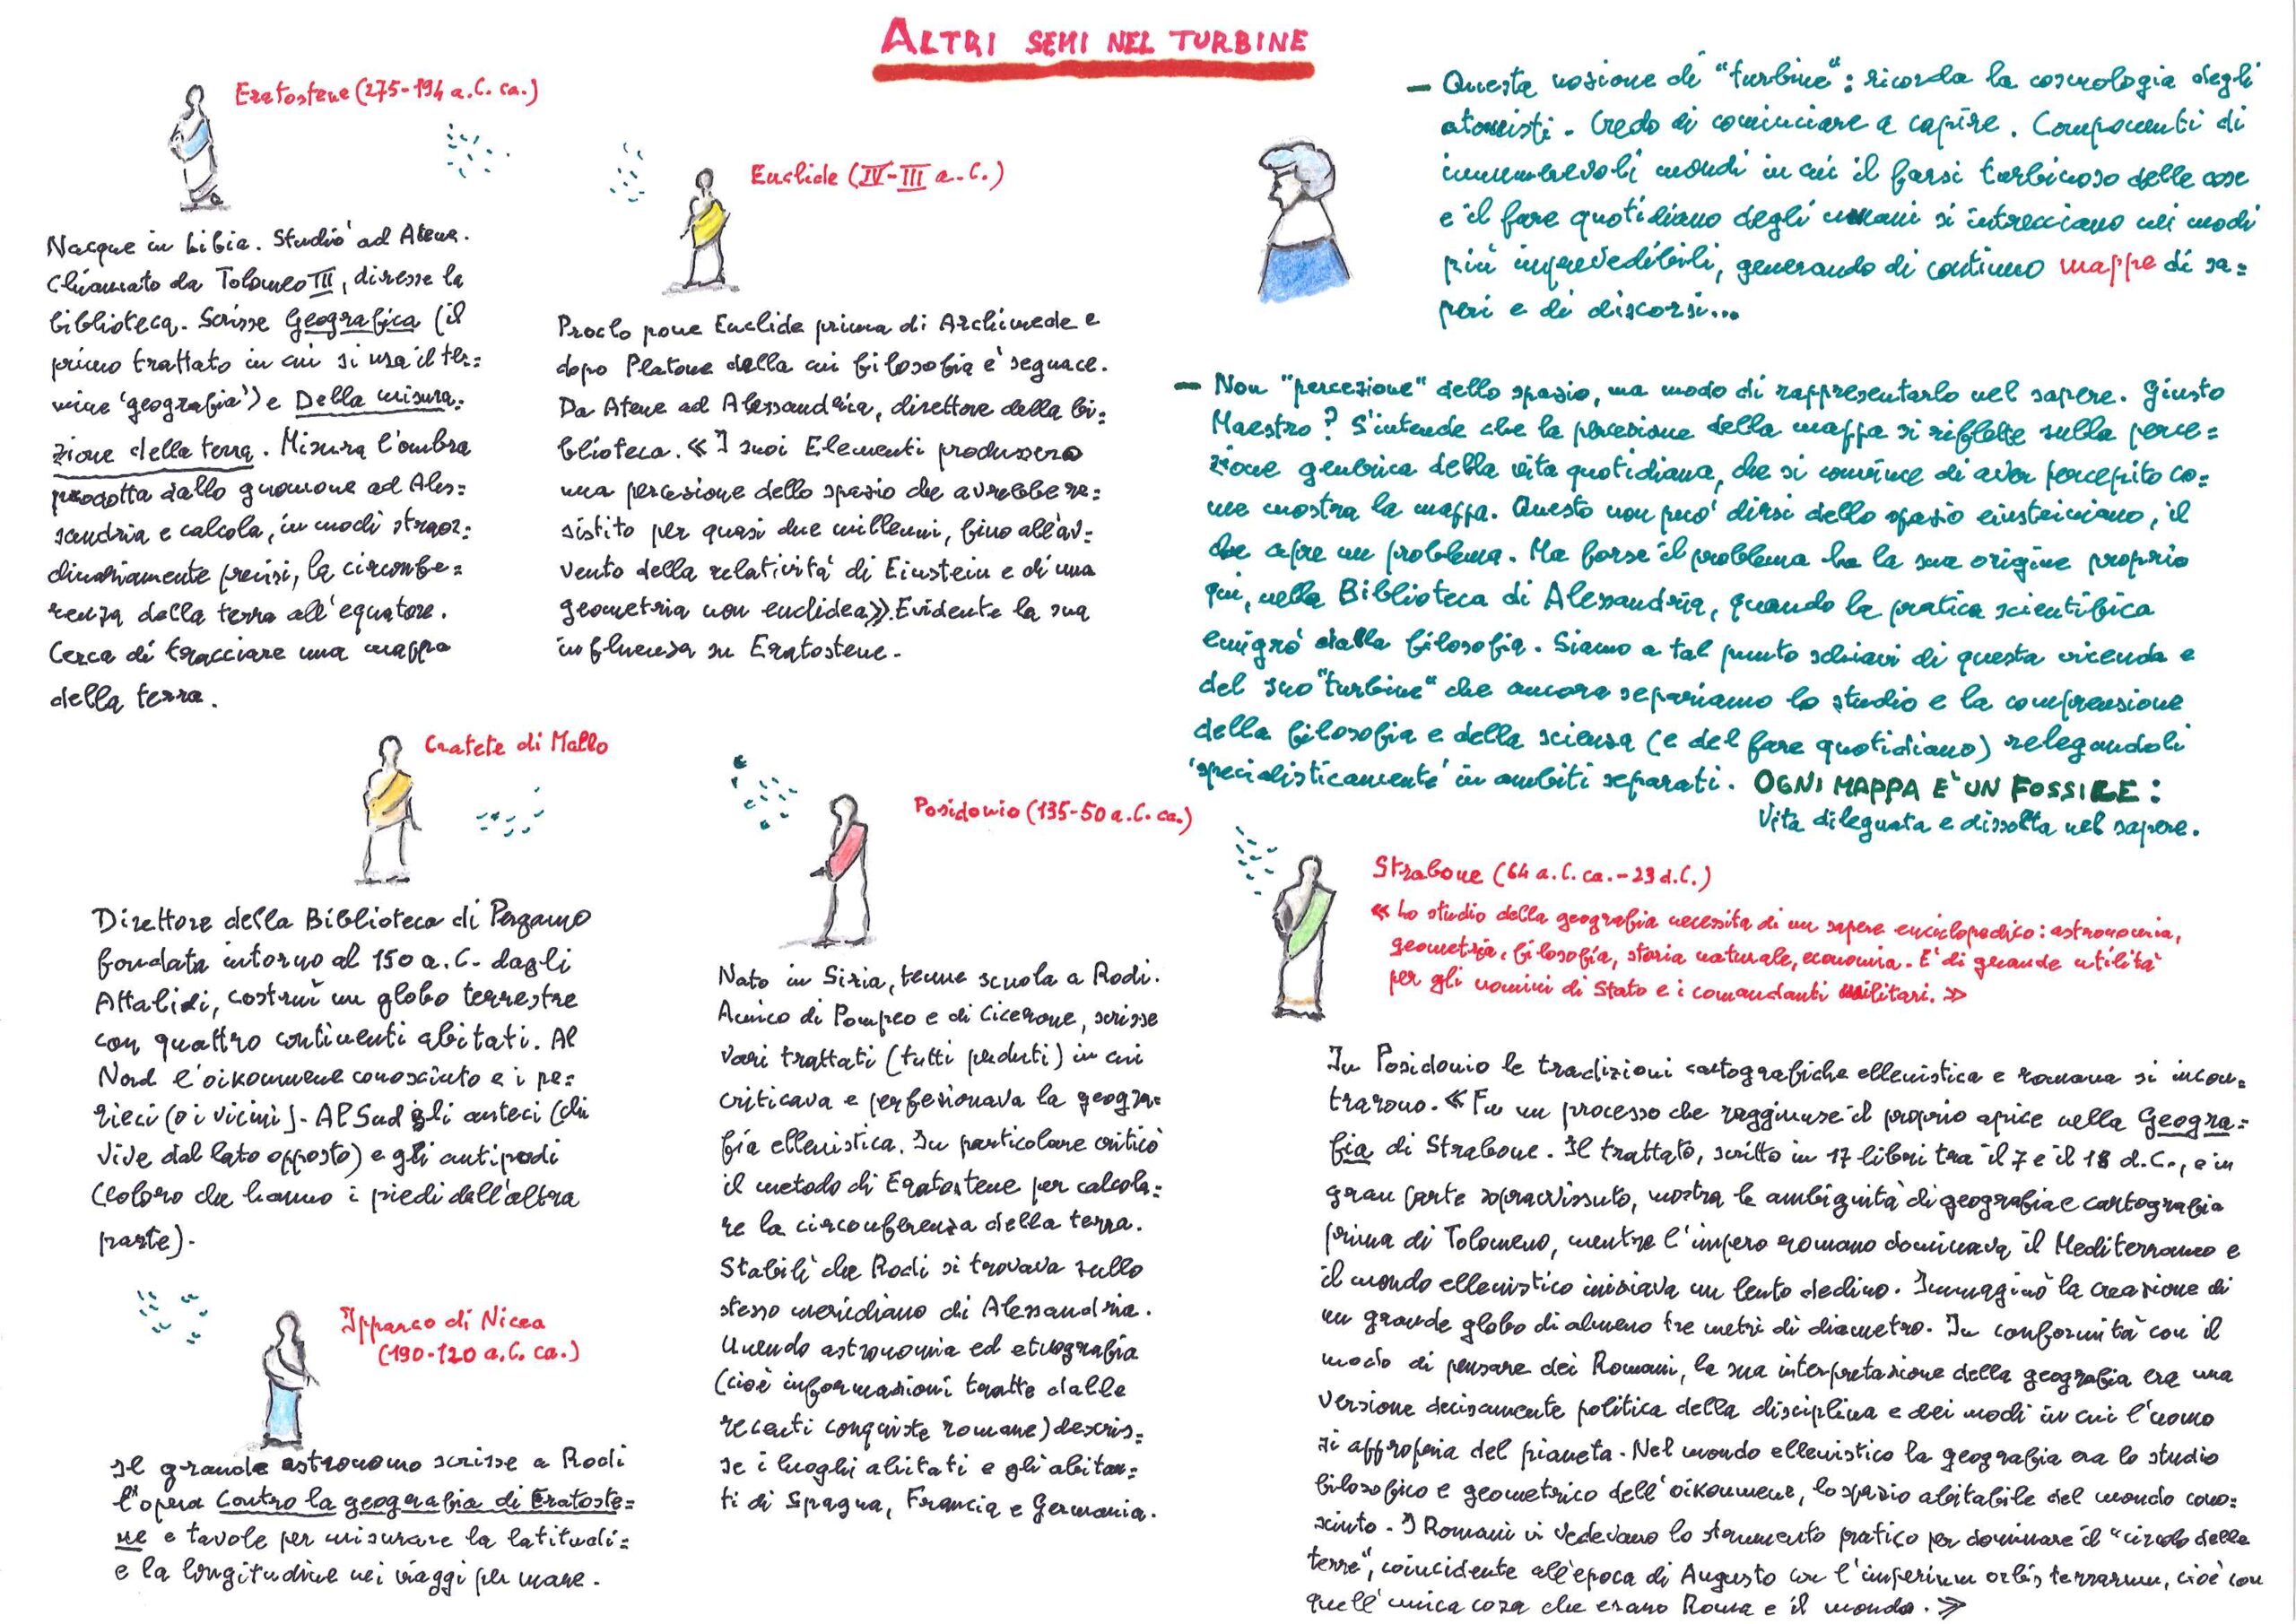 ALTRI SEMI NEL TURBINE
Eratostene (275-194 a.C. ca.)
Nacque in Libia. Studiò ad Atene.
Chiamato da Tolomeo III, diresse la
biblioteca. Scrisse Geografica (il
primo trattato in cui si usa il ter=
mine 'geografia') e Della misura=
zione della terra. Misura l'ombra
prodotta dallo gnomone ad Ales=
sandria e calcola, in modi straor=
dinariamente precisi, la circonfe=
renza della terra all'equatore.
Cerca di tracciare una mappa
della terra.
Euclide (IV-III a.C.)
Proclo pone Euclide prima di Archimede e
dopo Platone della cui filosofia è seguace.
Da Atene ad Alessandria, direttore della bi=
blioteca. «I suoi Elementi produssero
una percezione dello spazio che avrebbe re=
sistito per quasi due millenni, fino all'av=
vento della relatività di Einstein e di una
geometria non euclidea». Evidente la sua
influenza su Eratostene.
— Questa nozione di "turbine": ricorda la cosmologia degli
atomisti. Credo di cominciare a capire. Componenti di
innumerevoli mondi in cui il farsi turbinoso delle cose
e il fare quotidiano degli umani si intrecciano nei modi
più imprevedibili, generando di continuo mappe di sa=
peri e di discorsi...
— Non "percezione" dello spazio, ma modo di rappresentarlo nel sapere. Giusto
Maestro? S'intende che la percezione della mappa si riflette sulla perce=
zione generica della vita quotidiana, che si convince di aver percepito co=
me mostra la mappa. Questo non può dirsi dello spazio einsteiniano, il
che apre un problema. Ma forse il problema ha la sua origine proprio
qui, nella Biblioteca di Alessandria, quando la pratica scientifica
emigrò dalla filosofia. Siamo a tal punto schiavi di questa vicenda e
del suo "turbine" che ancora separiamo lo studio e la comprensione
della filosofia e della scienza (e del fare quotidiano) relegandoli
'specialisticamente' in ambiti separati. OGNI MAPPA E' UN FOSSILE:
Vita dileguata e dissolta nel sapere.
Cratete di Mallo
Direttore della Biblioteca di Pergamo
fondata intorno al 150 a.C. dagli
Attalidi, costruì un globo terrestre
con quattro continenti abitati. Al
Nord l'oikoumene conosciuto e i pe=
rieci (o i vicini). Al Sud gli anteci (chi
vive dal lato opposto) e gli antipodi
(coloro che hanno i piedi dall'altra
parte).
Ipparco di Nicea
(190-120 a.C. ca.)
Il grande astronomo scrisse a Rodi
l'opera Contro la geografia di Eratoste=
ne e tavole per misurare la latitudi=
e la longitudine nei viaggi per mare.
Posidonio (135-50 a.C. ca.)
Nato in Siria, tenne scuola a Rodi.
Amico di Pompeo e di Cicerone, scrisse
vari trattati (tutti perduti) in cui
criticava e perfezionava la geogra=
fia ellenistica. In particolare criticò
il metodo di Eratostene per calcola=
re la circonferenza della terra.
Stabilì che Rodi si trovava sullo
stesso meridiano di Alessandria.
Unendo astronomia ed etnografia
(cioè informazioni tratte dalle
recenti conquiste romane) descris=
se i luoghi abitati e gli abitan=
ti di Spagna, Francia e Germania.
Strabone (64 a.C. ca. - 23 d.C.)
«Lo studio della geografia necessita di un sapere enciclopedico: astronomia,
geometria, filosofia, storia naturale, economia. E' di grande utilità
per gli uomini di Stato e i comandanti militari.»
In Posidonio le tradizioni cartografiche ellenistica e romana si incon=
trarono. «Fu un processo che raggiunse il proprio apice nella Geogra=
fia di Strabone. Il trattato, scritto in 17 libri tra il 7 e il 18 d.C., e in
gran parte sopravvissuto, mostra le ambiguità di geografia e cartografia
prima di Tolomeno, mentre l'impero romano dominava il Mediterraneo e
il mondo ellenistico iniziava un lento declino. Immaginò la creazione di
un grande globo di almeno tre metri di diametro. In conformità con il
modo di pensare dei Romani, la sua interpretazione della geografia era una
versione decisamente politica della disciplina e dei modi in cui l'uomo
si appropria del pianeta. Nel mondo ellenistico la geografia era lo studio
filosofico e geometrico dell'oikoumene, lo spazio abitabile del mondo cono=
sciuto. I Romani vi vedevano lo strumento pratico per dominare il "circolo delle
terre", coincidente all'epoca di Augusto con l'imperium orbis terrarum, cioè con
quell'unica cosa che erano Roma e il mondo.»